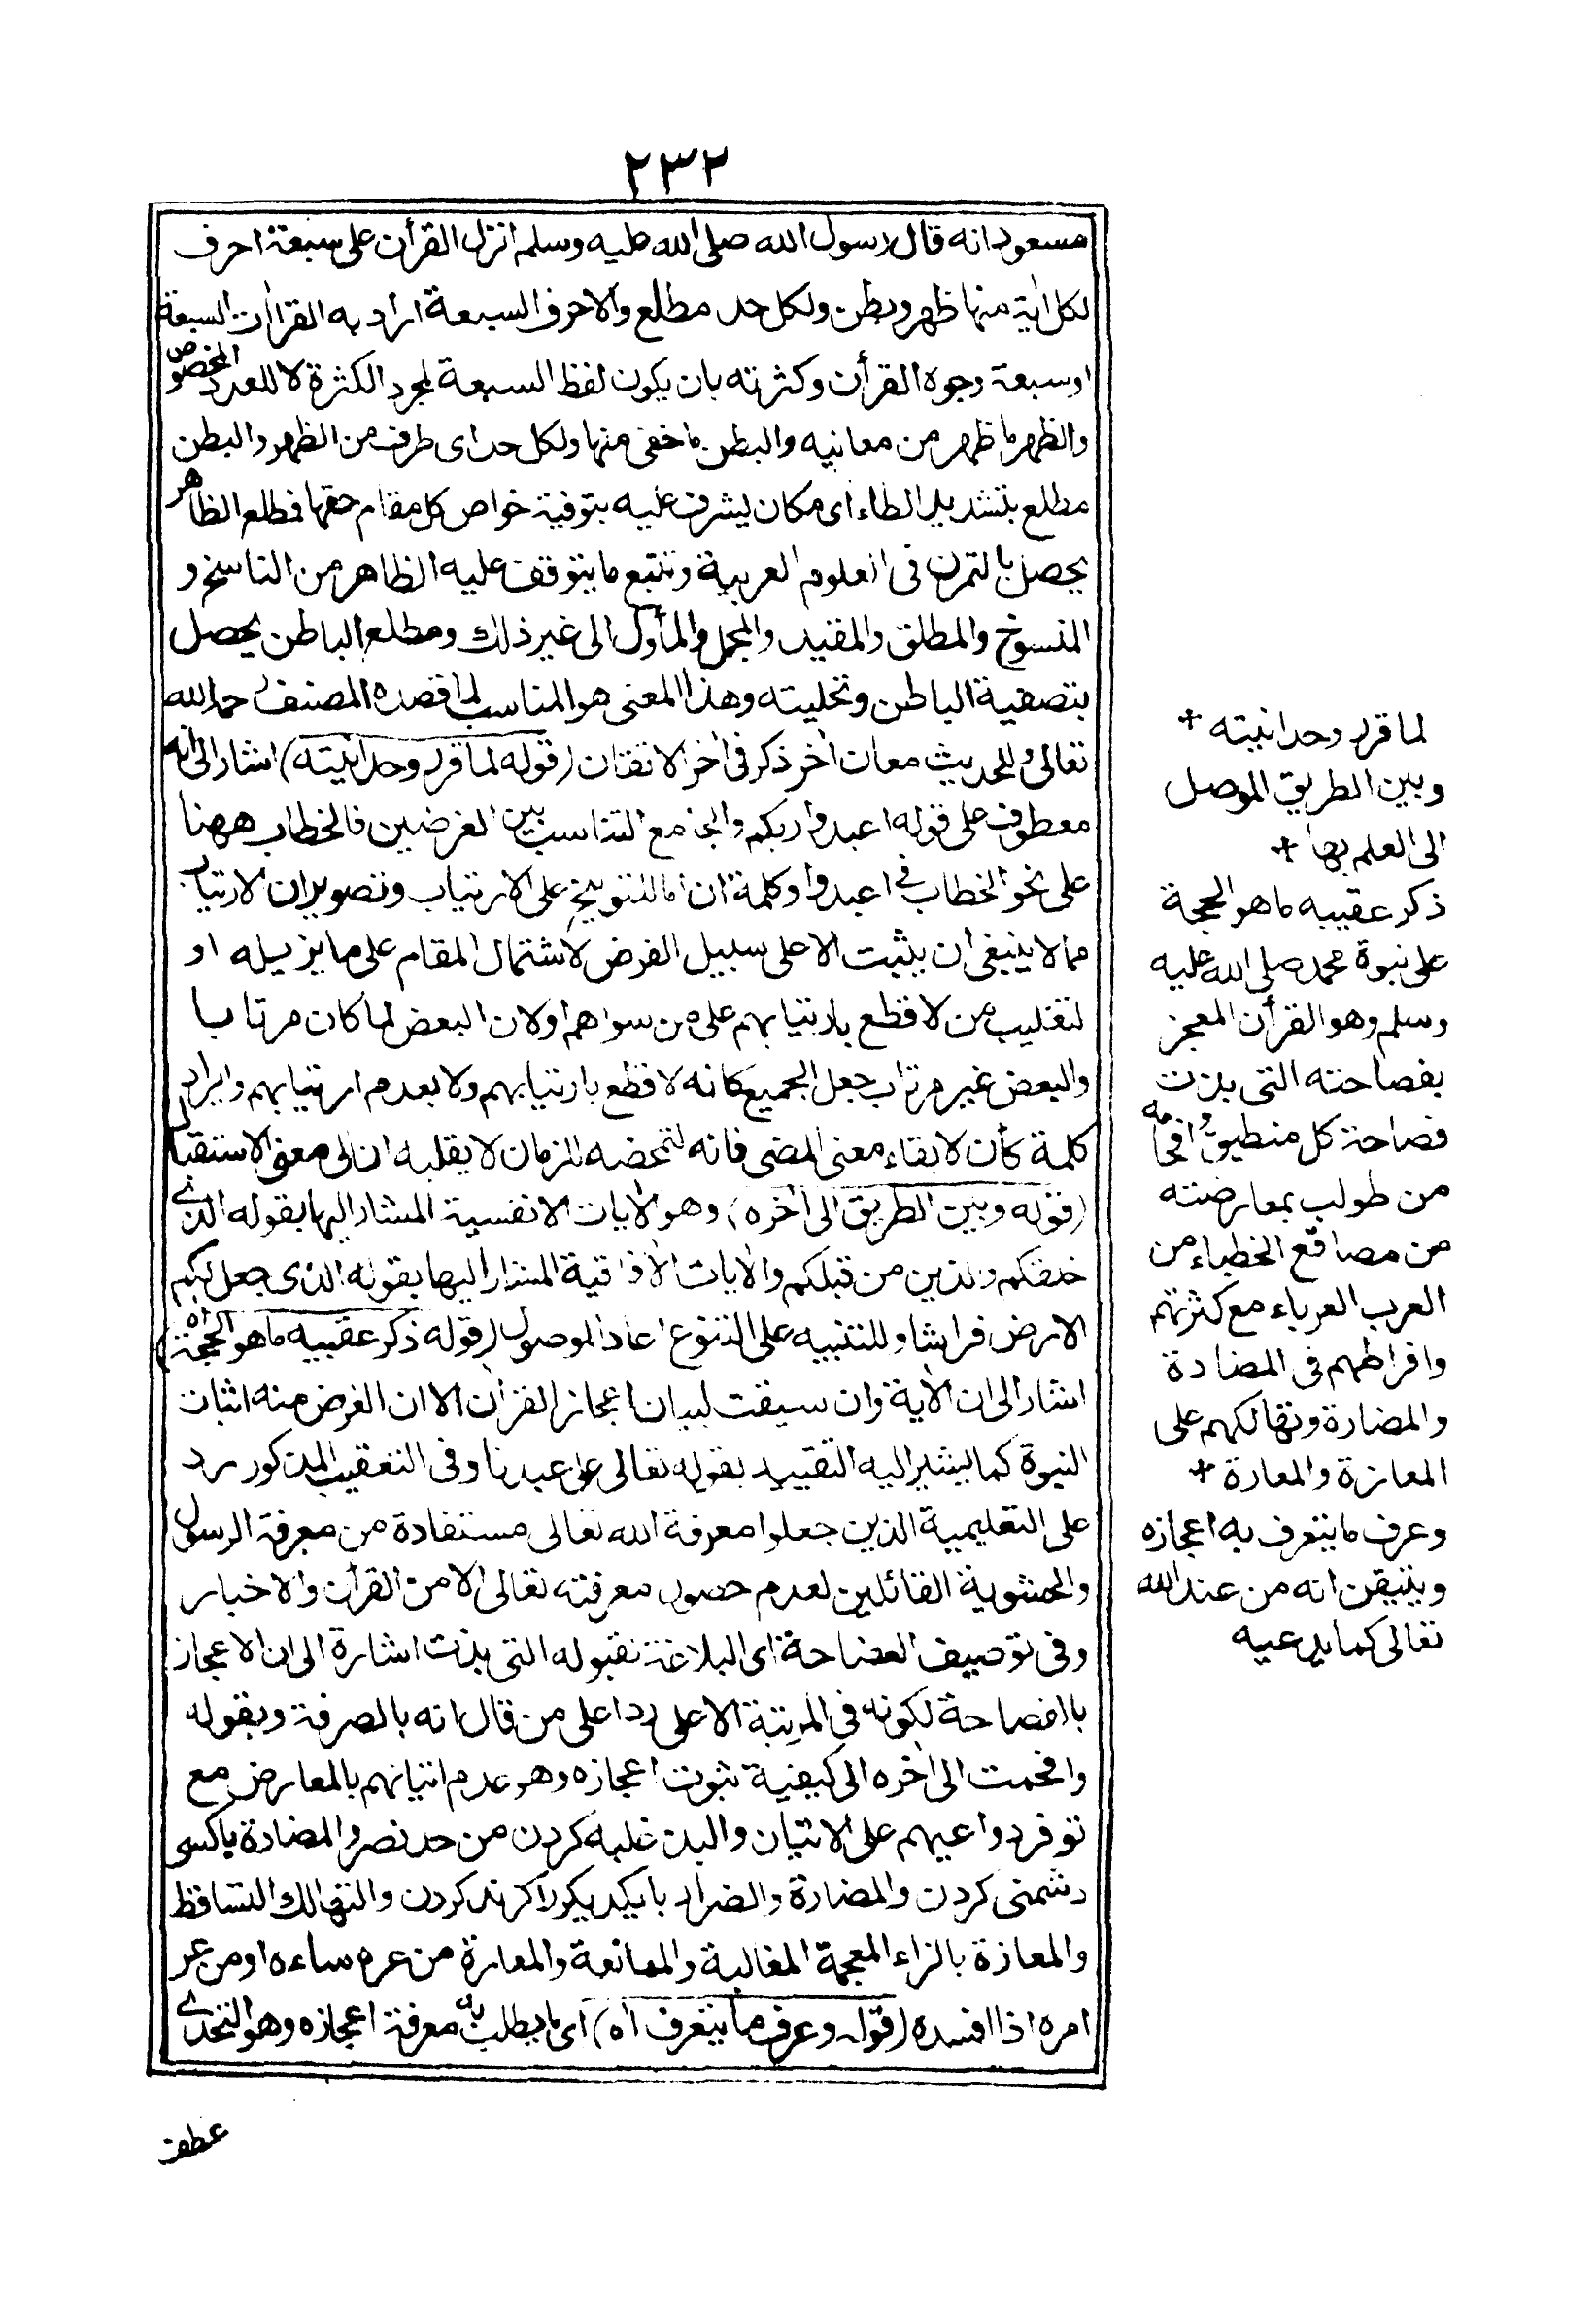 ٢٣٢
مسعود انه قال رسول الله صلى الله عليه وسلم انزل القرأن على سبعة احرف
لكل اية منها ظهر وبطن ولكل حد مطلع والاحرف السبعة اراد به القراات السبعة
او سبعة وجوه القرأن وكثرته بان يكون لفظ السبعة لمجرد الكثرة لا للعدد المخصوص
والظهر ما ظهر من معانيه والبطن ما خفى منها ولكل حد اى طرف من الظهر والبطن
مطلع بتشديد الطاء اى مكان يشرف عليه بتوفية خواص كل مقام حقها فطلع الظاهر
يحصل بالتمرن فى العلوم العربية وتتبع ما يتوقف عليه الظاهر من الناسخ و
المنسوخ والمطلق والمقيد والمجمل والمأول الى غير ذلك ومطلع الباطن يحصل
بتصفية الباطن وتحليته وهذا المعنى هو المناسب لما قصده المصنف رحمه الله
تعالى وللحديث معان اخر ذكر فى اخر الاتقان (قوله لما قرر وحدانيته) اشار الى انه
معطوف على قوله اعبدوا ربكم والجامع التناسب بين الغرضين فالخطاب ههنا
على نحو الخطاب فى اعبدوا وكلمة ان اما للتوبيخ على الارتياب وتصوير ان الارتياب
مما لا ينبغى ان يثبت الا على سبيل الفرض لاشتمال المقام على ما يزيله او
لتغليب من لا قطع بارتيابهم على من سواهم او لان البعض لما كان مرتابا
والبعض غير مرتاب جعل الجميع كانه لا قطع بارتيابهم ولا بعدم ارتيابهم وايراد
كلمة كأن لابقاء معنى المضى فانه لتمحضه للزمان لا يقلبه ان الى معنى الاستقبال
(قوله وبين الطريق الى اخره) وهو الايات الانفسية المشار اليها بقوله الذى
خلقكم والذين من قبلكم والايات الافاقية المشار اليها بقوله الذى جعل لكم
الارض فراشا وللتنبيه على التنوع اعاد الموصول (قوله ذكر عقيبه ما هو الحجة اه)
اشار الى ان الاية وان سيقت لبيان اعجاز القرأن الا ان الغرض منه اثبات
النبوة كما يشير اليه التقييد بقوله تعالى على عبدنا وفى التعقيب المذكور رد
على التعليمية الذين جعلوا معرفة الله تعالى مستفادة من معرفة الرسول
والحشوية القائلين لعدم حصول معرفته تعالى الا من القرأن والاخبار
وفى توصيف الفصاحة اى البلاغة بقوله التى بذت اشارة الى ان الاعجاز
بالفصاحة لكونه فى المرتبة الاعلى ردا على من قال انه بالصرفة وبقوله
وافحمت الى اخره الى كيفية ثبوت اعجازه وهو عدم اتيانهم بالمعارض مع
توفر دواعيهم على الاتيان والبذ غلبه كردن من حد نصر والمضادة باكسى
دشمنى كردن والمضارة والضرار بايكديكر را كزند كردن والتهالك التساقط
والمعازة بالزاء المعجمة المغالبة والممانعة والمعارة من عره ساءه او من عر
امره اذا افسده (قوله وعرف ما يتعرف اه) اى ما يطلب به معرفة اعجازه وهو التحدى
لما قرر وحدانيته *
وبين الطريق الموصل
الى العلم بها *
ذكر عقيبه ما هو الحجة
على نبوة محمد صلى الله عليه
وسلم وهو القرأن المعجز
بفصاحته التى بذت
فصاحة كل منطيق وافحامه
من طولب بمعارضته
من مصاقع الخطباء من
العرب العرباء مع كثرتهم
وافراطهم فى المضادة
والمضارة وتهالكهم على
المعازة والمعارة *
وعرف ما يتعرف به اعجازه
ويتيقن انه من عند الله
تعالى كما يدعيه
عطف